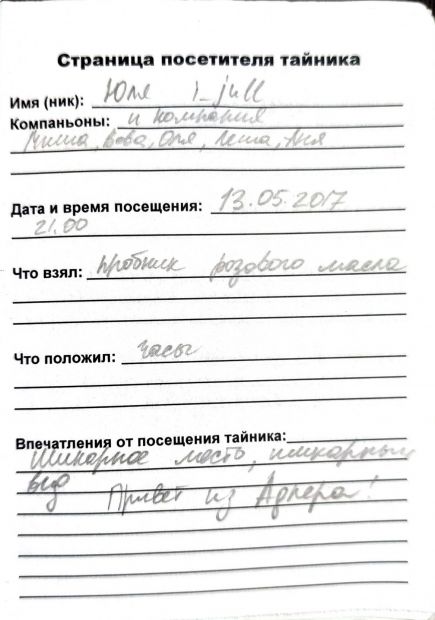 Страница посетителя тайника
Имя (ник): Юля i_jull
Компаньоны: и компания
Миша, Вова, Оля, Леша, Аня
Дата и время посещения: 13.05.2017
21.00
Что взял: пробник розового масла
Что положил: часы
Впечатления от посещения тайника:
Шикарное место, шикарный
вид Привет из Адлера!